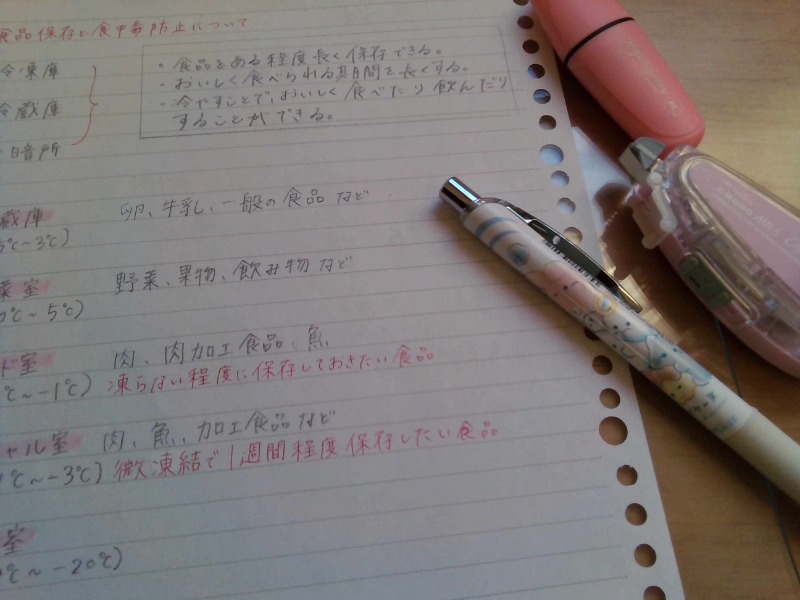 食品保存と食中毒防止について
冷凍庫
冷蔵庫
暗所
・食品をある程度長く保存できる。
・おいしく食べられる期間を長くする。
・冷やすことで、おいしく食べたり飲んだり
することができる。
蔵庫 卵、牛乳、一般の食品など
℃〜3℃)
菜室 野菜、果物、飲み物など
℃〜5℃)
ド室 肉、肉加工食品、魚
℃〜-1℃) 凍らない程度に保存しておきたい食品
ャル室 肉、魚、加工食品など
℃〜-3℃) 微凍結で1週間程度保存したい食品
室
℃〜-20℃)